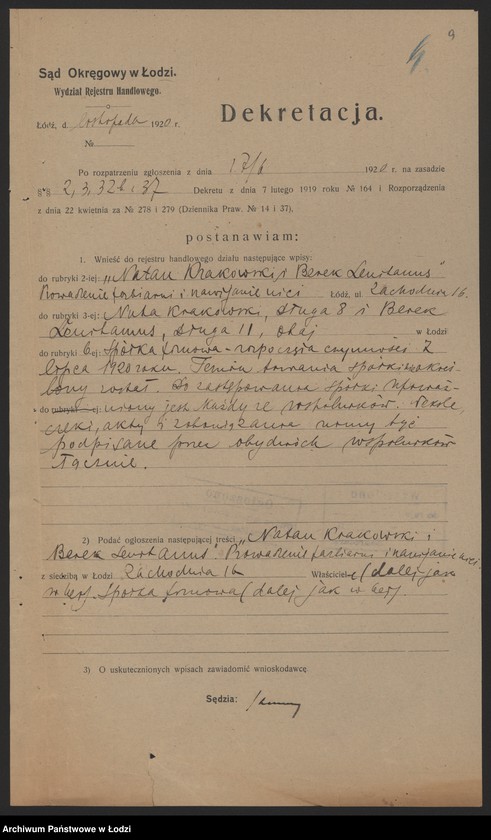 9
4.
Sąd Okręgowy w Łodzi.
Wydział Rejestru Handlowego.
Łódź, d. listopada 1920 r.
№
Dekretacja.
Po rozpatrzeniu zgłoszenia z dnia 17/6 1920 r. na zasadzie
§ § 2, 3, 32b i 37 Dekretu z dnia 7 lutego 1919 roku № 164 i Rozporządzenia
z dnia 22 kwietnia za № 278 i 279 (Dziennika Praw. № 14 i 37).
postanawiam:
1. Wnieść do rejestru handlowego działu następujące wpisy:
do rubryki 2-iej: „Natan Krakowski i Berek
Prowadzenie farbiarni i nawijanie nici Łódź, ul Zachodnia 16.
do rubryki 3-iej: Natan Krakowski, Długa 8 i Berek
Długa 11, obaj w Łodzi
do rubryki 6-ej: Spółka firmowa - rozpoczęła czynności 7
lipca 1920 roku. Termin trwania spółki
został. Do zastępowania spółki upoważ-
do rubryki -ej: niony jest każdy ze wspólników. Weksle,
czeki, akty i zobowiązania winny być
podpisane przez obydwóch wspólników
łącznie.
2) Podać ogłoszenia następującej treści „Natan Krakowski i
Berek Prowadzenie farbiarni i nawijanie nici.
z siedzibą w Łodzi Zachodnia 16 Właściciel (dalej jak
Spółka firmowa (dalej jak w
3) O uskutecznionych wpisach zawiadomić wnioskodawcę
Sędzia:
Archiwum Państwowe w Łodzi